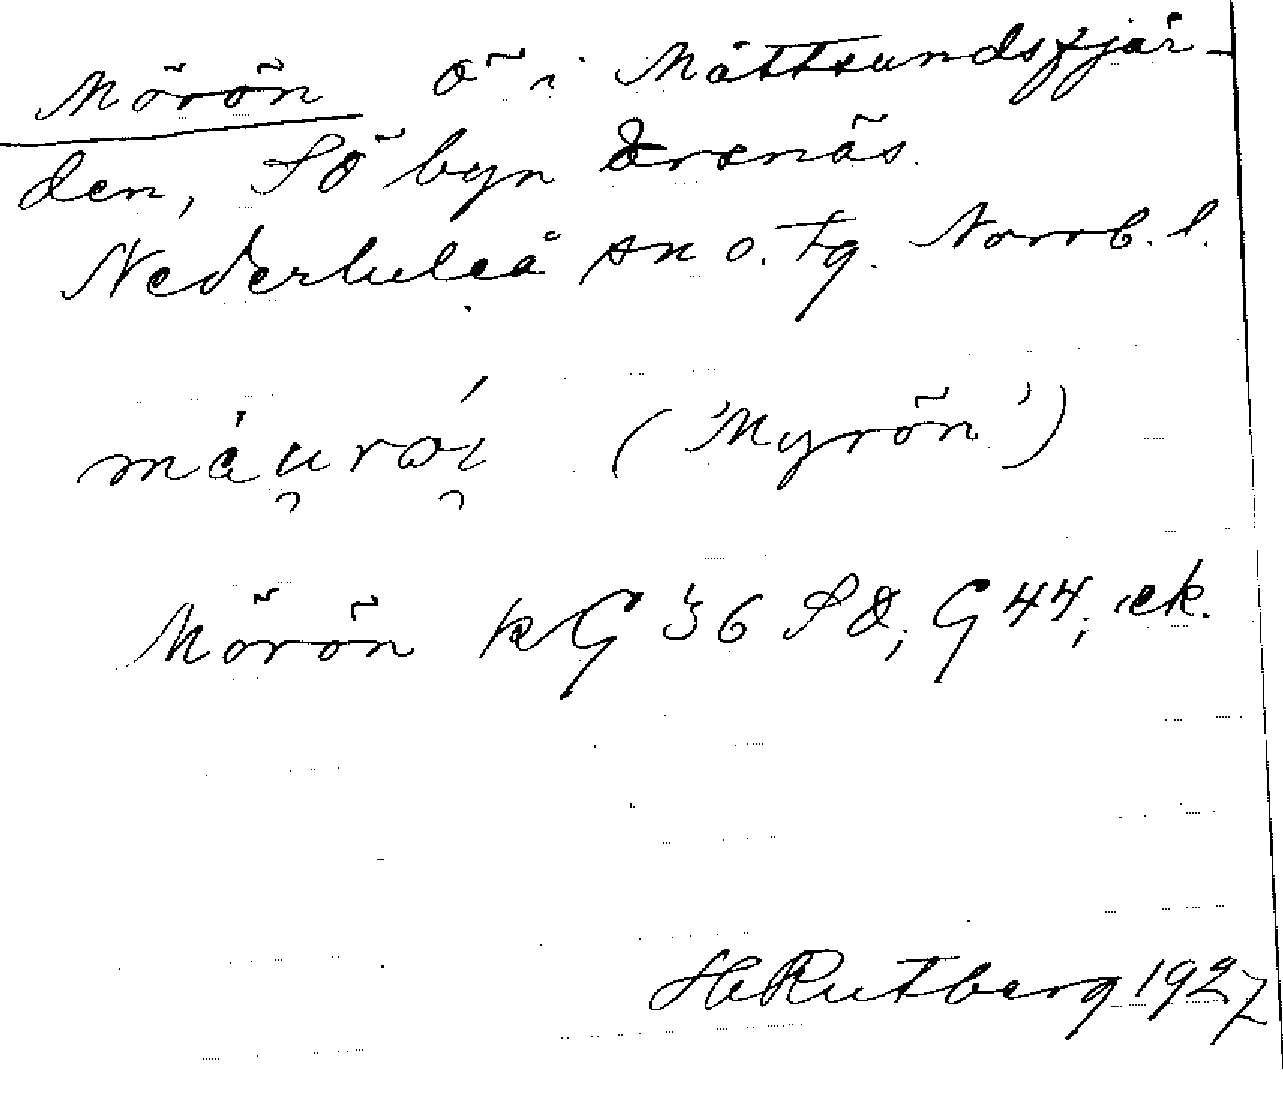 Mörön ö i Måttsundsfjär-
den, SÖ byn Ersnäs.
Nederluleå sn o. tg. Norrb. l.
måu̯røi̯ ('Myrön')
Mörön kG 36 SÖ, G 44, ek.
H Rutberg 1927